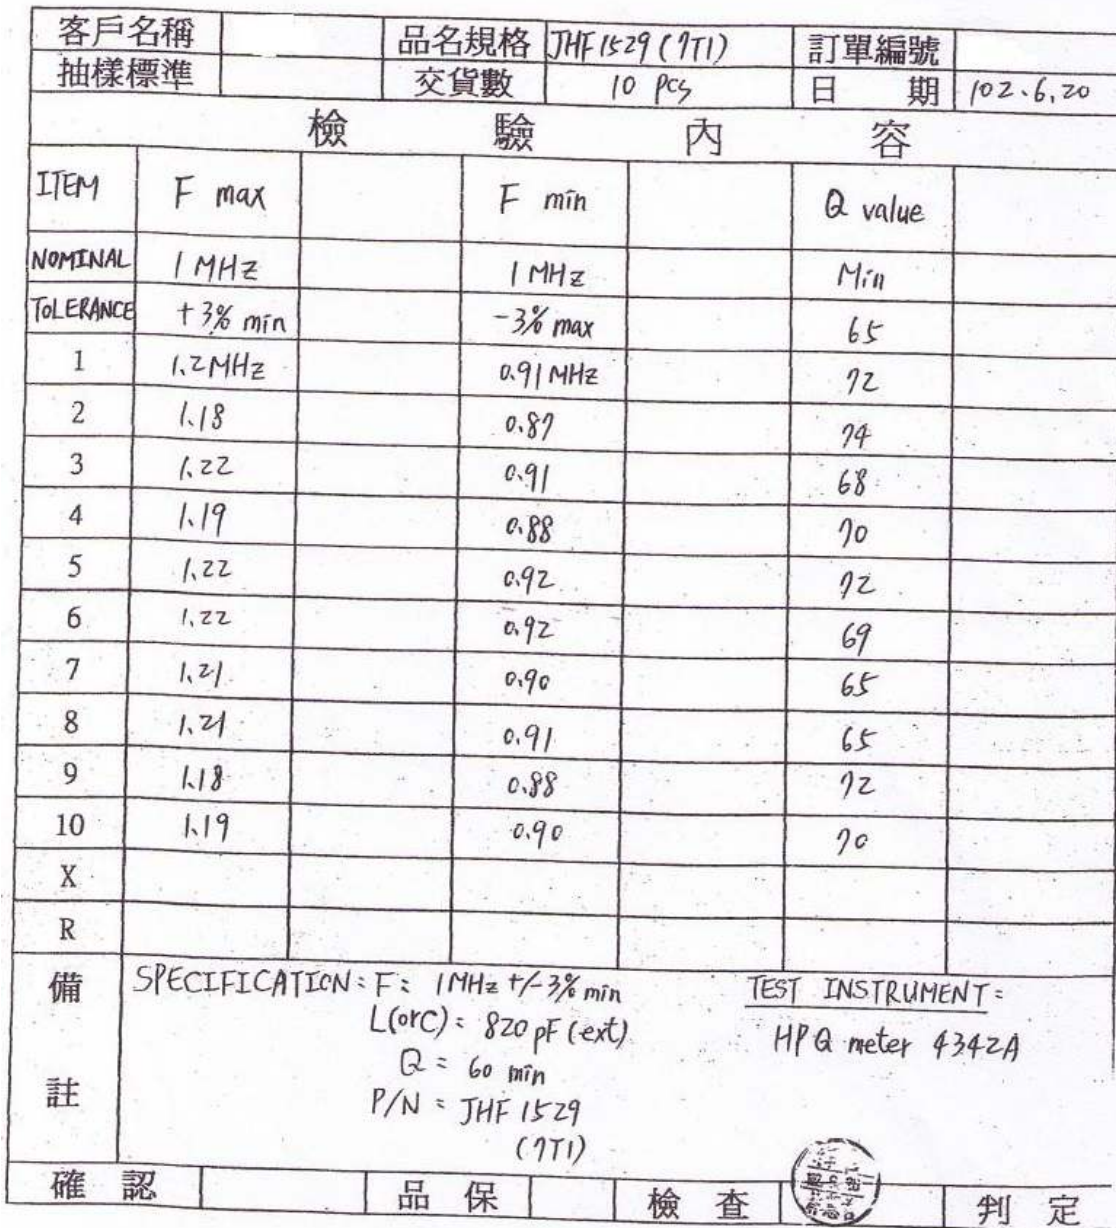 客戶名稱 品名規格 JHF1529 (7T1) 訂單編號
抽樣標準 交貨數 10 pcs 日期 102.6.20
檢驗內容
ITEM F max F min Q value
NOMINAL 1 MHz 1 MHz Min
TOLERANCE +3% min -3% max 65
1 1.2MHz 0.91MHz 72
2 1.18 0.87 74
3 1.22 0.91 68
4 1.19 0.88 70
5 1.22 0.92 72
6 1.22 0.92 69
7 1.21 0.90 65
8 1.21 0.91 65
9 1.18 0.88 72
10 1.19 0.90 70
X
R
備註
SPECIFICATION: F: 1MHz +/-3% min
L(orC): 820 pF (ext)
Q: 60 min
P/N: JHF 1529
(7T1)
TEST INSTRUMENT:
HP Q meter 4342A
確認 品保 檢查 判定